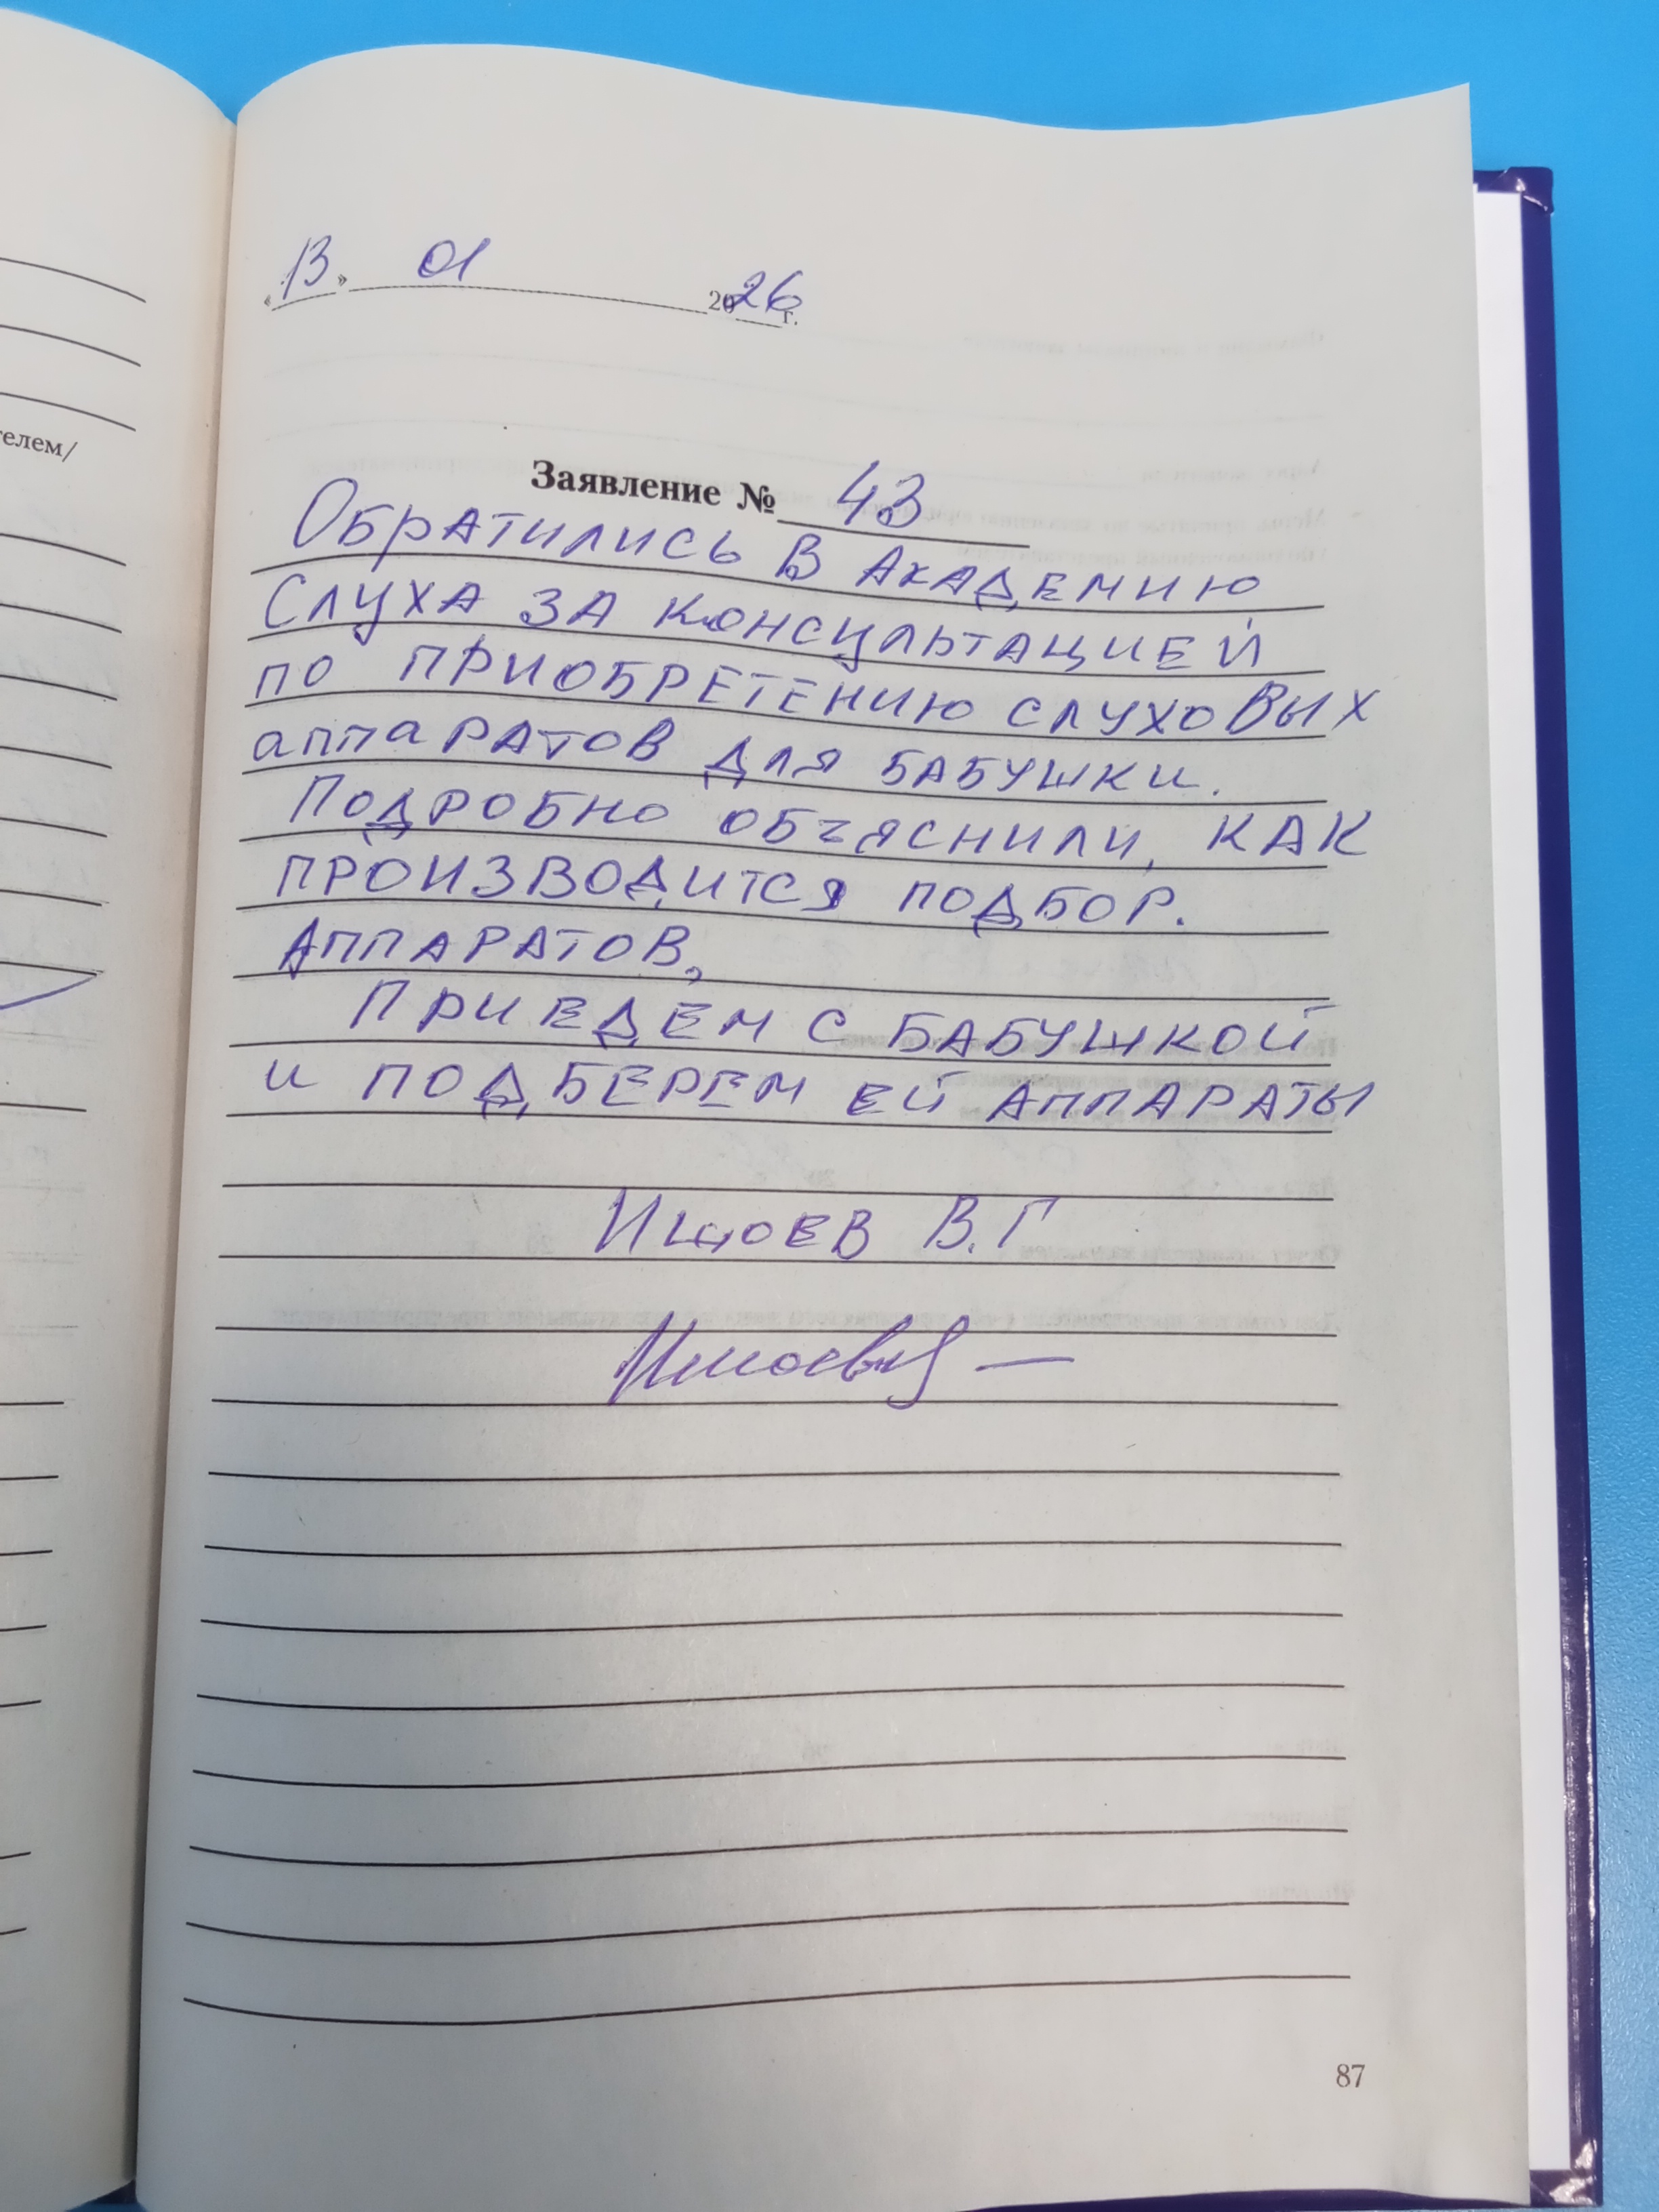 телем/
«13» 01 2026 г.
Заявление № 43
Обратились в Академию
Слуха за консультацией
по приобретению слуховых
аппаратов для бабушки.
Подробно объяснили, как
производится подбор.
Аппаратов,
Приедем с бабушкой
и подберем ей аппараты
Ищоев В.Г
87